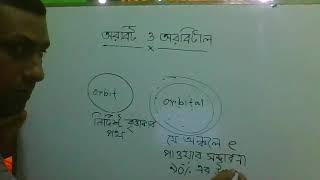 অরবিট ও অরবিটাল
x
orbit
orbital
নির্দিষ্ট বৃত্তাকার
পথ
যে অঞ্চলে e
পাওয়ার সম্ভাবনা
৯০% এর